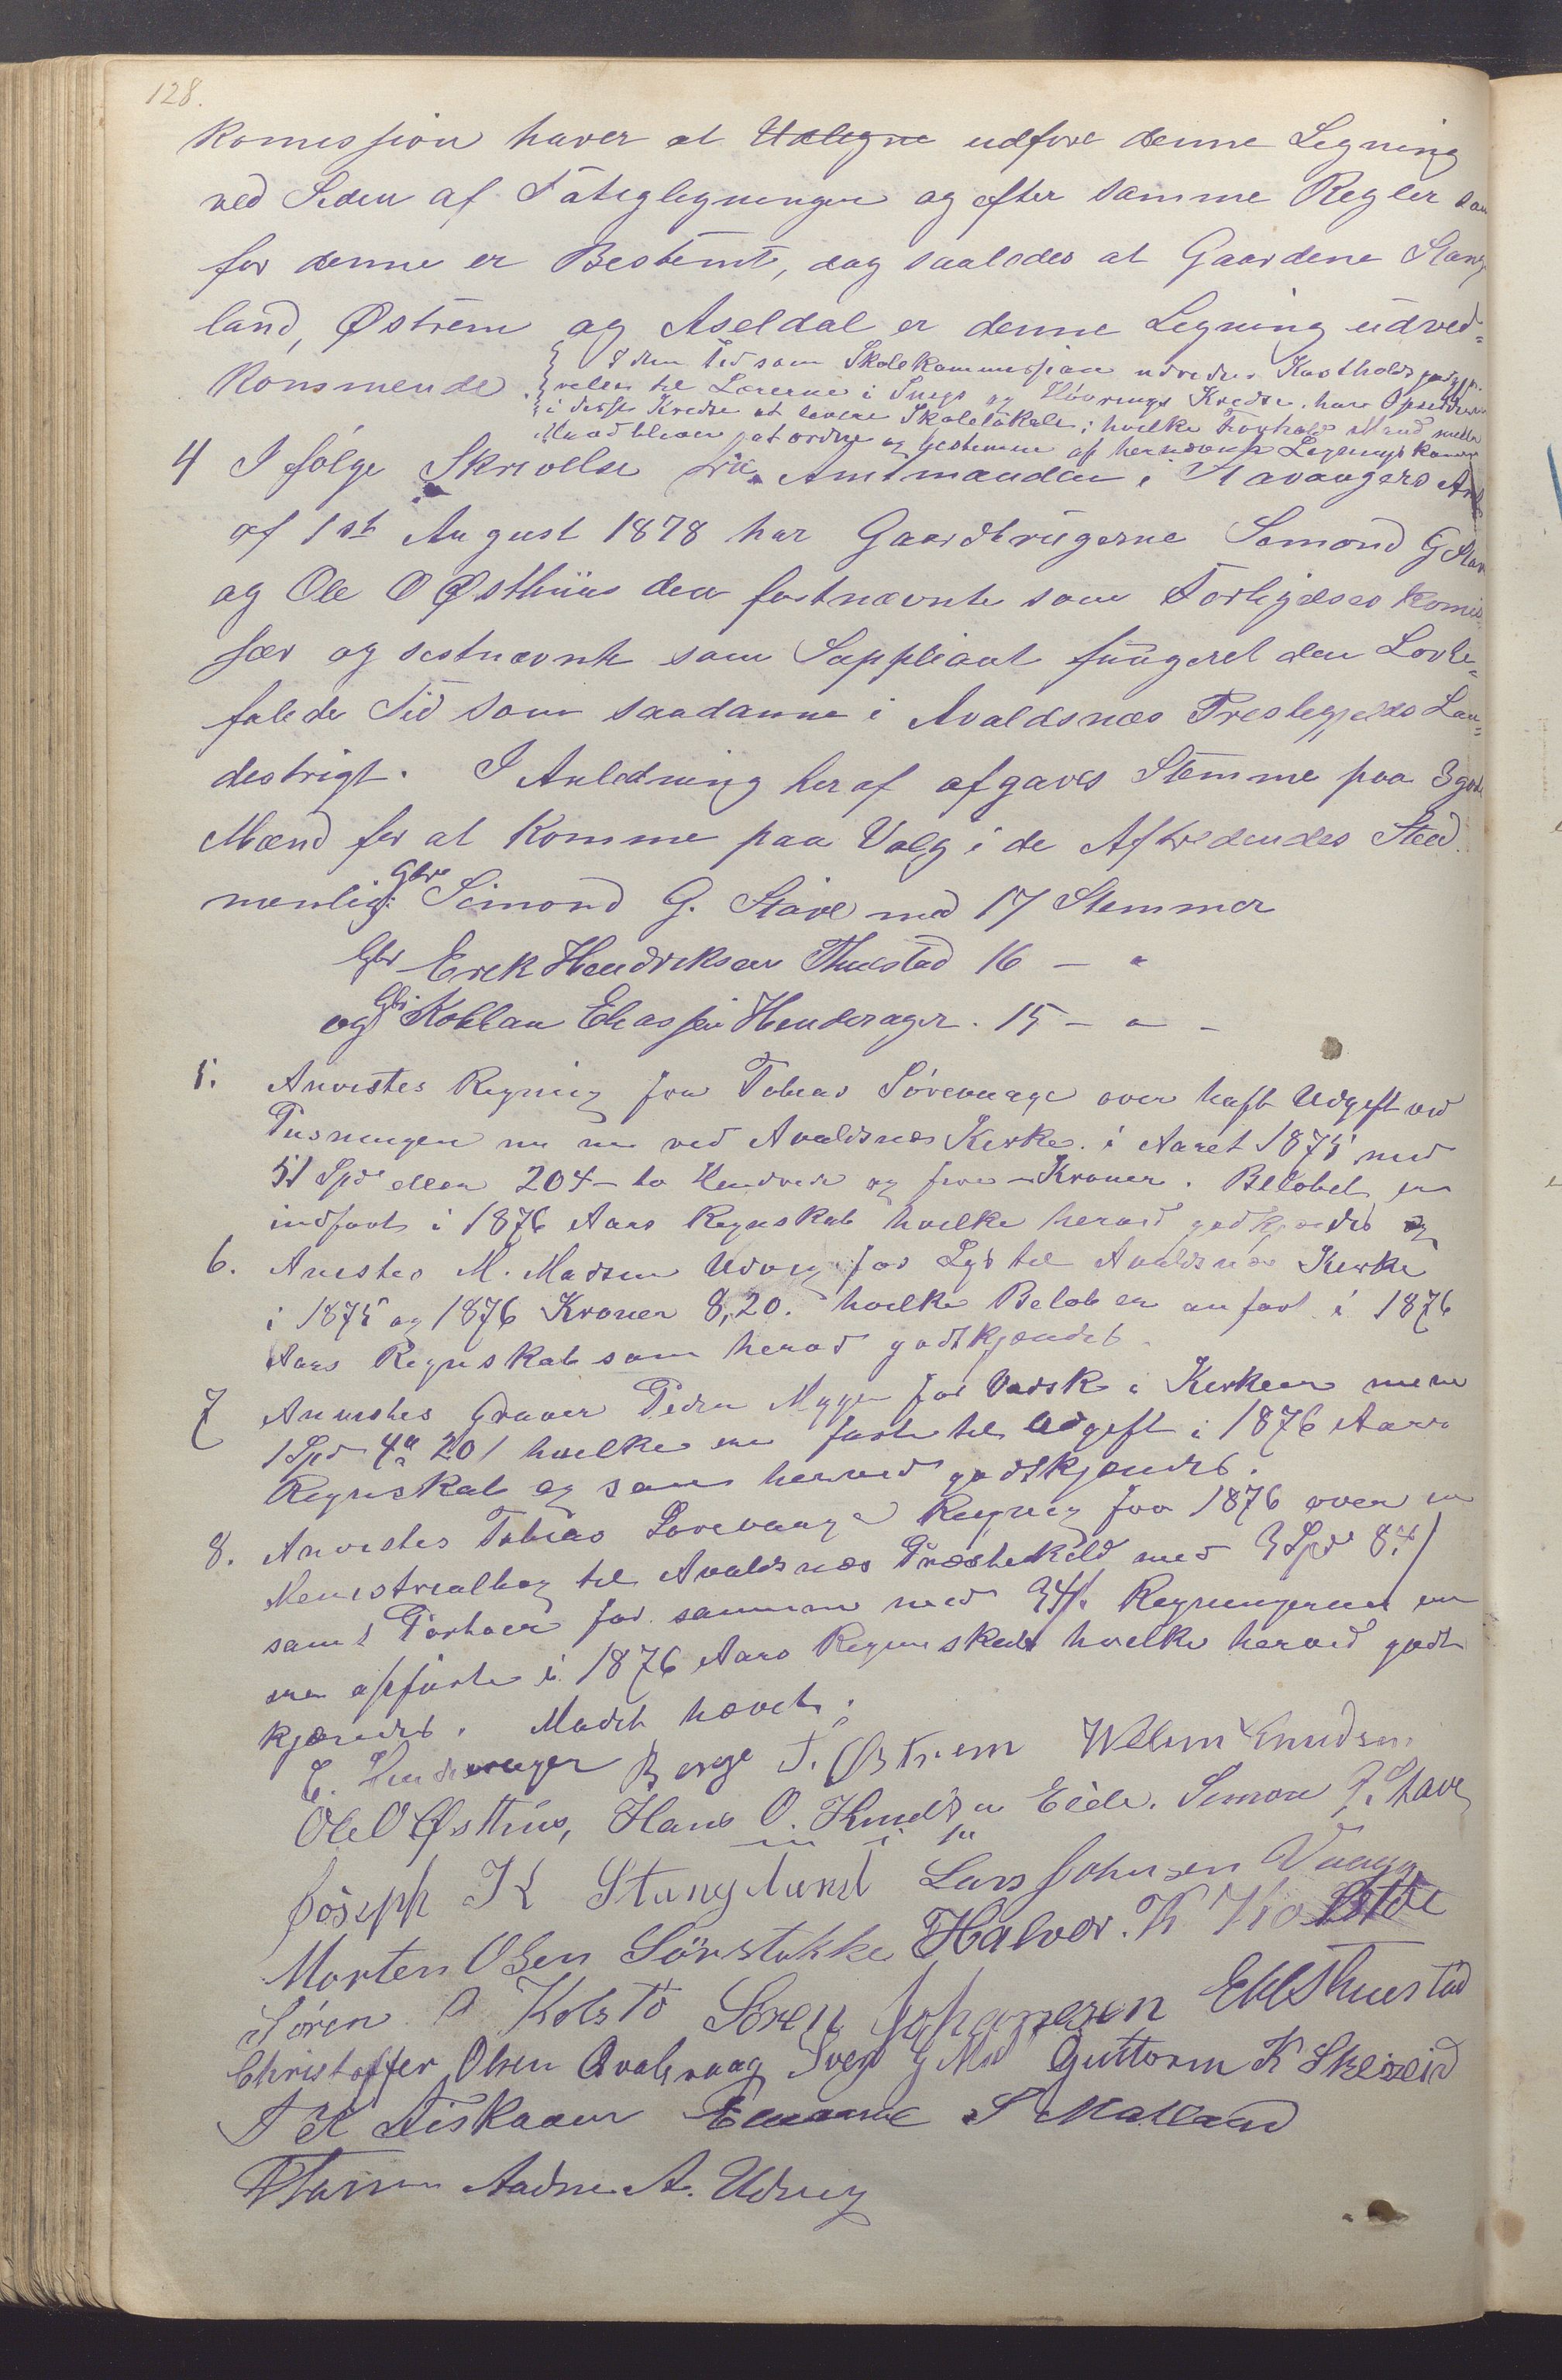 128.
Komission haver at Udligne udføre denne Ligning
ved Siden af Fatigligningen og efter samme Regler som
for denne er Bestemt, dog saaledes at Gaardene Stange
land, Østrem og Aseldal er denne Ligning udved=
Kommende.
I den Tid som Skolekommissionen udreder Kostholds
til Lærerne i Snegs og Hövrings Kredse, har Opsidderne
i disse Kredse at levere Skolelokale; hvilke Forhold Mand mellem
Mand bliver at ordne og bestemme af herværende Lignings
4 I følge Skrivelse fra Amtmanden i Stavangers Amt
af 1st August 1878 har Gaardbrugerne Semond G Stave
og Ole O Østhuus den førstnævnte som Forligelses Komis=
sær og sistnævnte som Suppleant fungeret den Lovbe=
falede Tid som saadanne i Avaldsnæs Prestegjelds Lan=
destrigt. I Anledning heraf afgaves Stemme paa 3 gode
Mænd for at Komme paa Valg i de Aftredendes Sted
nemlig: Gbr Simond G. Stave med 17 Stemmer
Gbr Erek Hendriksen Thuestad 16 — "
og Gbr Koldan Eliassen Henderager. 15 — " —
5. Anvistes Regning fra Tobias Sörevaage over haft Udgift ved
Pusningen ved Avaldsnæs Kirke i Aaret 1875 med
51 Spd eller 204 – to Hundrede og fire – Kroner. Beløbet er
indført i 1876 Aars Regnskab hvilke herved godkjendes
6. Anvistes M. Madsen Udvig for Lys til Avaldsnæs Kirke
i 1875 og 1876 Kroner 8,20. hvilke Beløb er anført i 1876
Aars Regnskab som herved godkjendes.
7 Anvistes Graver Peder Nygg for Vadsk i Kirken
1 Spd 4 20 / hvilke er ført til Udgift i 1876 Aars
Regnskab og som herved godkjendes.
8. Anvistes Tobias Sorevaage Regning for 1876 over en
Menistrealbog til Avaldsnæs Præstekald med 3 Spd 84 /
samt Portoer for samme med 34 /. Regningerne er
opførte i 1876 Aars Regnskab hvilke herved god
kjendes. Mødet hævet.
E. Henderager Børge T. Østrem Willum Knudsen
Ole O Østhus, Hans O. Knudsen Eide. Simon G. Stave
Joseph K Stangeland Lars Johnsen Vaage
Morten Olsen Sörstokke Halvor. K
Søren Kolstö Søren Johannesen E H Thuestad
Christoffer Olsen Qvalevaag Sven G Guttorm K Skeiseid
T K Fiskaaen S Matland
Aadne A. Udvig